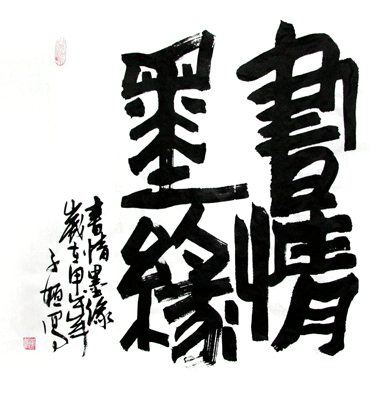 書情
墨緣
書情墨緣
歲在甲午年
子